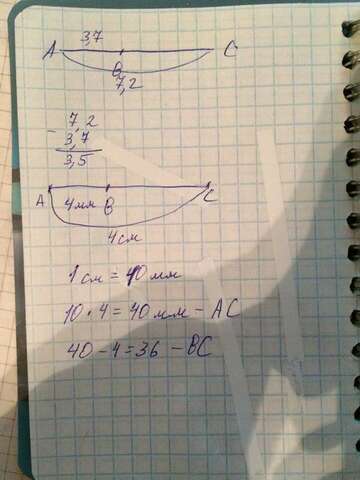 3,7
A B C
7,2
- 7,2
3,7
3,5
A 4мм B C
4см
1см = 10мм
10 · 4 = 40мм - AC
40 - 4 = 36 - BC